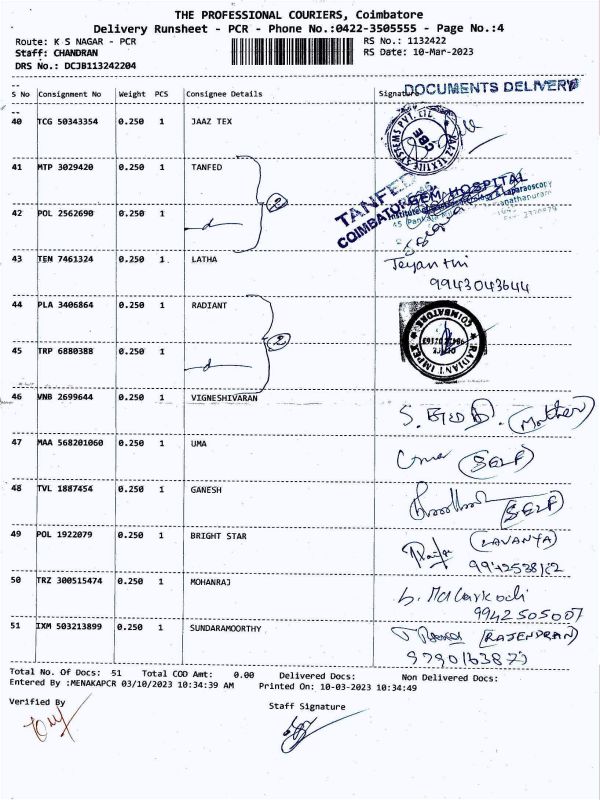 THE PROFESSIONAL COURIERS, Coimbatore
Delivery Runsheet - PCR - Phone No.:0422-3505555 - Page No.:4
Route: K S NAGAR - PCR
RS No.: 1132422
Staff: CHANDRAN
RS Date: 10-Mar-2023
DRS No.: DCJB113242204
DOCUMENTS DELIVERY
S No Consignment No Weight PCS Consignee Details Signature
40 TCG 50343354 0.250 1 JAAZ TEX
41 MTP 3029420 0.250 1 TANFED
TANFED
COIMBATORE
GEM HOSPITAL
42 POL 2562690 0.250 1 d 2
43 TEN 7461324 0.250 1 LATHA
Jeyanthi
9943043644
44 PLA 3406864 0.250 1 RADIANT
RADIANT IMPEX COIMBATORE
45 TRP 6880388 0.250 1 d 2
46 VNB 2699644 0.250 1 VIGNESHIVARAN
(Mother)
47 MAA 568201060 0.250 1 UMA
Uma (SELF)
48 TVL 1887454 0.250 1 GANESH
(SELF)
49 POL 1922079 0.250 1 BRIGHT STAR
(LAVANYA)
50 TRZ 300515474 0.250 1 MOHANRAJ
9942505007
51 IXM 503213899 0.250 1 SUNDARAMOORTHY
(RAJENDRAN)
Total No. Of Docs: 51 Total COD Amt: 0.00 Delivered Docs: Non Delivered Docs:
Entered By :MENAKAPCR 03/10/2023 10:34:39 AM Printed On: 10-03-2023 10:34:49
Verified By
Staff Signature